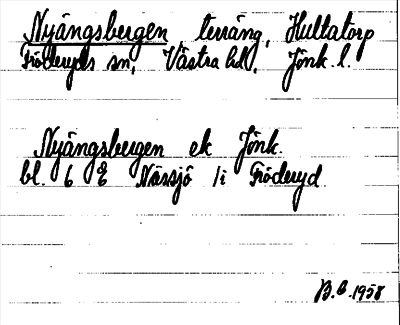 Nyängsbergen terräng, Hultatorp
Fröderyds sn, Västra hd, Jönk. l.
Nyängsbergen ek Jönk.
bl. 6 E Nässjö 1i Fröderyd
B.B. 1958